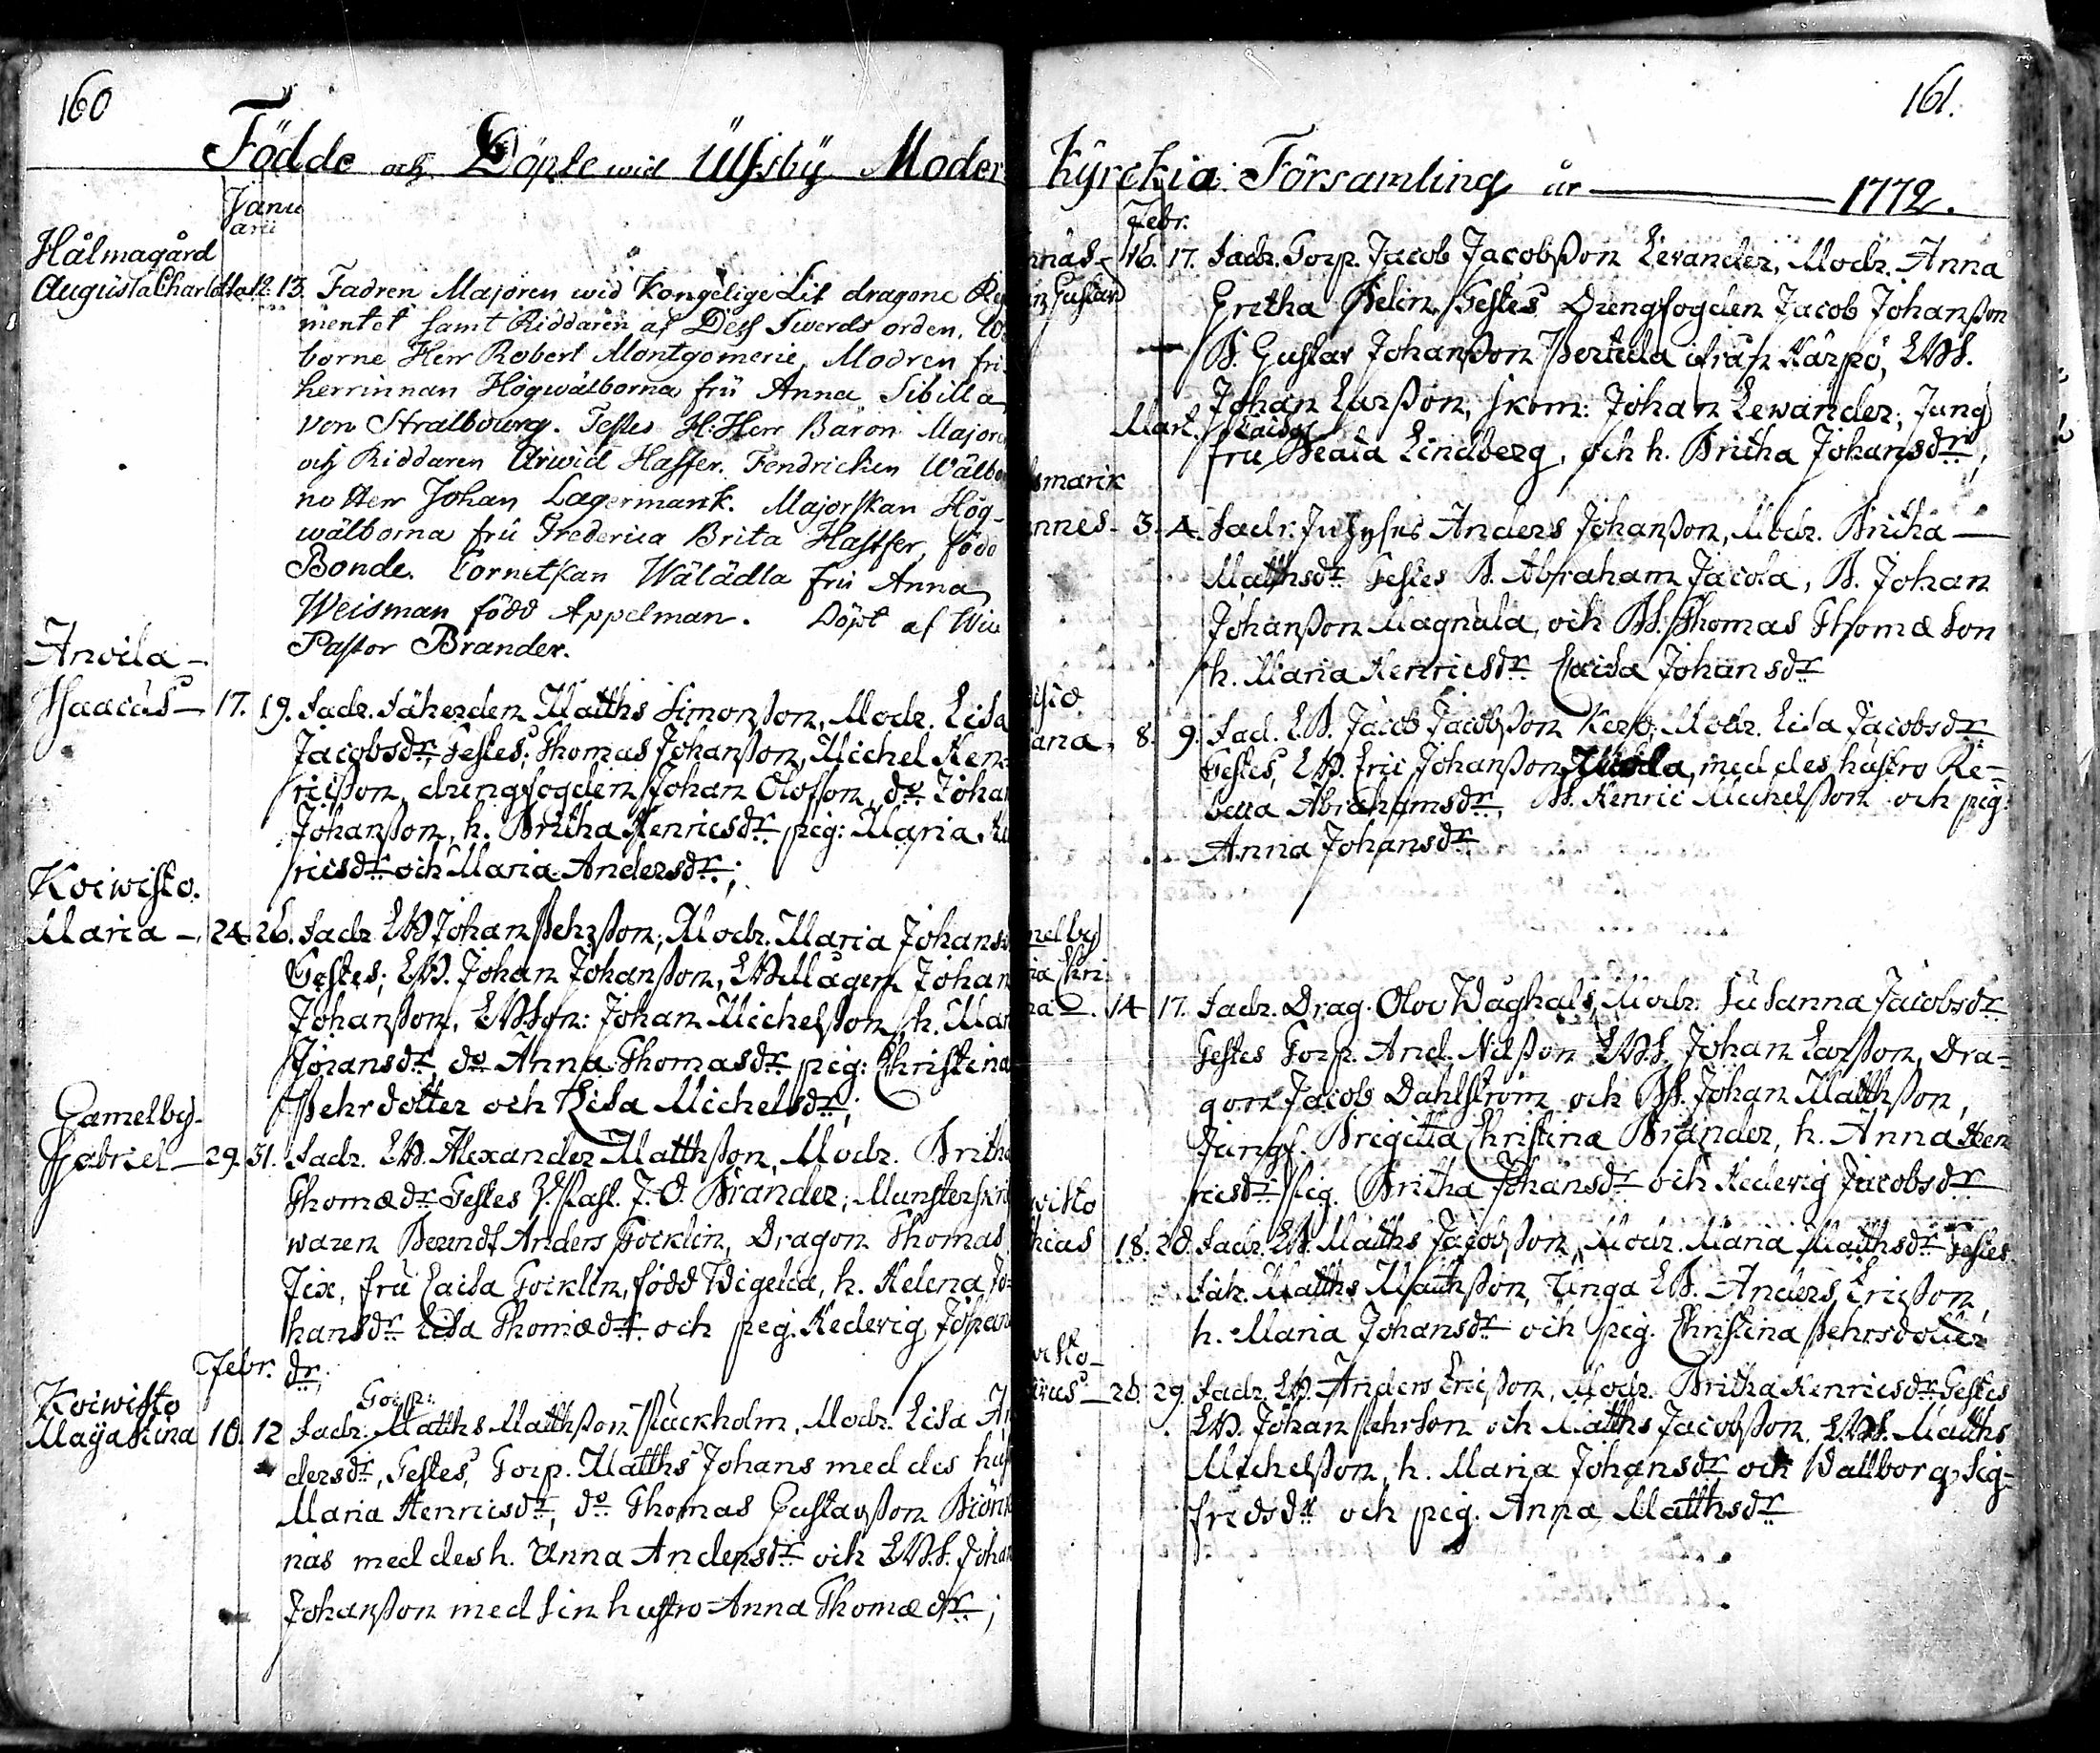 160
Födde och Döpte wid Ulfsby Moder
Janu
arii
Hålmagård
Augusta Charlotta 12. 13. Fadren Majoren wid Kongelige Lif dragone Re
mentet samt Riddaren af Dess Swerds orden,
borne Herr Robert Montgomerie, Modren fri
herrinnan Högwälborna fru Anna Sibilla
von Stralbourg. Testes H: Herr Baron Majoren
och Riddaren Arwid Hastfer. Fendricken Wälbor
ne Herr Johan Lagermark. Majorskan Hög-
wälborna fru Frederica Brita Hastfer, född
Bonde. Cornetskan Wälädla fru Anna
Weisman född Appelman. Döpt af Wice
Pastor Brander.
Anoila -
Isaacus - 17. 19. Fadr. Fäherden Matths Simonsson, Modr. Lisa
Jacobsdr Testes; Thomas Johansson, Michel Hen-
ricsson, drengfogden Johan Olofson, do Johan
Johansson, h. Britha Henricsdr pig: Maria Hen
ricsdr och Maria Andersdr;
Koiwisto.
Maria -. 24. 26. Fadr LB Johan Pehrsson, Modr. Maria Johans
Testes; LB. Johan Johansson, LB Mågen Johan
Johansson, LBSon: Johan Michelsson, h. Mar
Jöransdr, do Anna Thomasdr pig: Christina
Pehrdotter och Lisa Michelsdr;
Gamelby-
Gabriel - 29. 31. Fadr. LB. Alexander Matthsson, Modr. Britha
Thomædr Testes V. Past. J. O. Brander; Munsterskrif
waren Berndt Anders Gocklin, Dragon Thomas
Fix, fru Caisa Gocklin, född Wigelia, h. Helena Jo-
hansdr Lisa Thomædr och pig. Hedevig Johan
dr;
Febr.
Koiwisto Torp:
Maya Stina 10. 12 Fadr: Matths Matthsson Stackholm, Modr. Lisa An
dersdr, Testes, Torp. Matths Johans med des hust
Maria Henricsdr, do Thomas Gustavsson Biörn
näs med des h. Anna Andersdr och LBS. Johan
Johansson med sin hustro Anna Thomædr;
161.
Kyrckia Församling år 1772.
Febr.
näs - 16. 17. Fadr. Torp. Jacob Jacobsson Levander, Modr. Anna
Gustav Gretha Belin, Testes Drengfogden Jacob Johansson
B. Gustav Johansson Pertula ifrån Karpö, LBS.
Johan Larsson, skom: Johan Lewander; Jung
Mart. Caisa
fru Beata Lindberg, och h. Britha Johansdr;
smark
nnes - 3. 4. Fadr: Inhyses Anders Johansson, Modr. Britha
Matthsdr Testes B. Abraham Jacola, B. Johan
Johansson Magnula, och BS. Thomas Thomæ Son
h. Maria Henricsdr Caisa Johansdr
ana, 8. 9. Fad. LB. Jacob Jacobsson Kerp; Modr. Lisa Jacobsdr
Testes, LB. Eric Johansson, med des hustro Re-
becca Abrahamsdr, BS. Henric Michelsson och pig:
Anna Johansdr
melby
ia Chri
na. 14 17. Fadr. Drag. Olov Waghals, Modr: Susanna Jacobsdr
Testes Torp. And. Nilsson LBS. Johan Larsson, Dra-
gon Jacob Dahlström och BS. Johan Matthsson,
Jungf. Bregitta Christina Brander, h. Anna Hen
ricsdr Pig. Britha Johansdr och Hedevig Jacobsdr
wisto
thias 18. 20. Fadr. LB. Matths Jacobsson, Modr. Maria Matthsdr Testes
Fäh. Matths Matthsson, unga LB. Anders Ericsson,
h. Maria Johansdr och pig. Christina Pehrsdotter
wisto -
rus - 28. 29. Fadr. LB. Anders Ericsson, Modr. Britha Henricsdr Testes
LB. Johan Pehrson och Matths Jacobsson, LBS. Matths
Michelsson, h. Maria Johansdr och Wallborg Sig-
fredsdr och pig. Anna Matthsdr